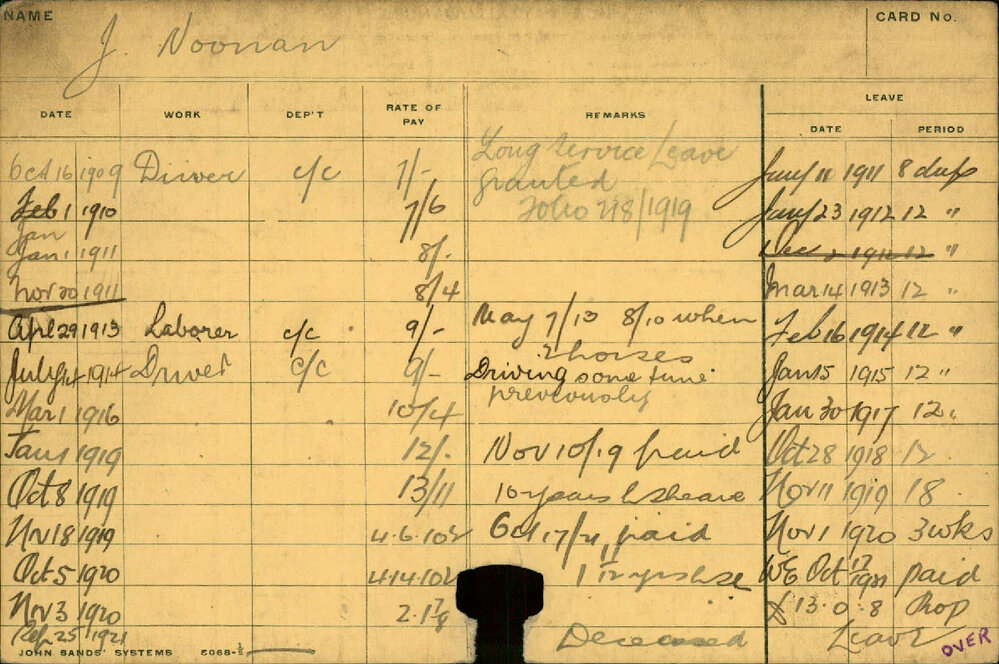 NAME
J. Noonan
CARD No.
DATE WORK DEP'T RATE OF PAY REMARKS LEAVE
DATE PERIOD
Oct 16 1909 Driver c/c 7/- Long Service Leave Jany 11 1911 8 days
granted
Feb 1 1910 7/6 Folio 218/1919 Jany 23 1912 12 "
Jan
Jan 1 1911 8/. Dec 2 1912 12 "
Nov 20 1911 8/4 Mar 14 1913 12 "
Apl 29 1913 Laborer c/c 9/- May 7/13 8/10 when Feb 16 1914 12 "
2 horses
July 14 1914 Driver c/c 9/- Driving some time Jan 15 1915 12 "
previously
Mar 1 1916 10/4 Jan 30 1917 12 "
Jan 1 1919 12/. Nov 10/19 paid Oct 28 1918 12
Oct 8 1919 13/11 10 years Nov 11 1919 18
Nov 18 1919 4.6.10½ Oct 17/21 paid Nov 1 1920 3 wks
Oct 5 1920 4.14.10½ 1 W/E Oct 17 1921 paid
Nov 3 1920 2.1 £13.0.8 Prop
Sep 25 1921 Deceased Leave
JOHN SANDS' SYSTEMS 5068-
OVER